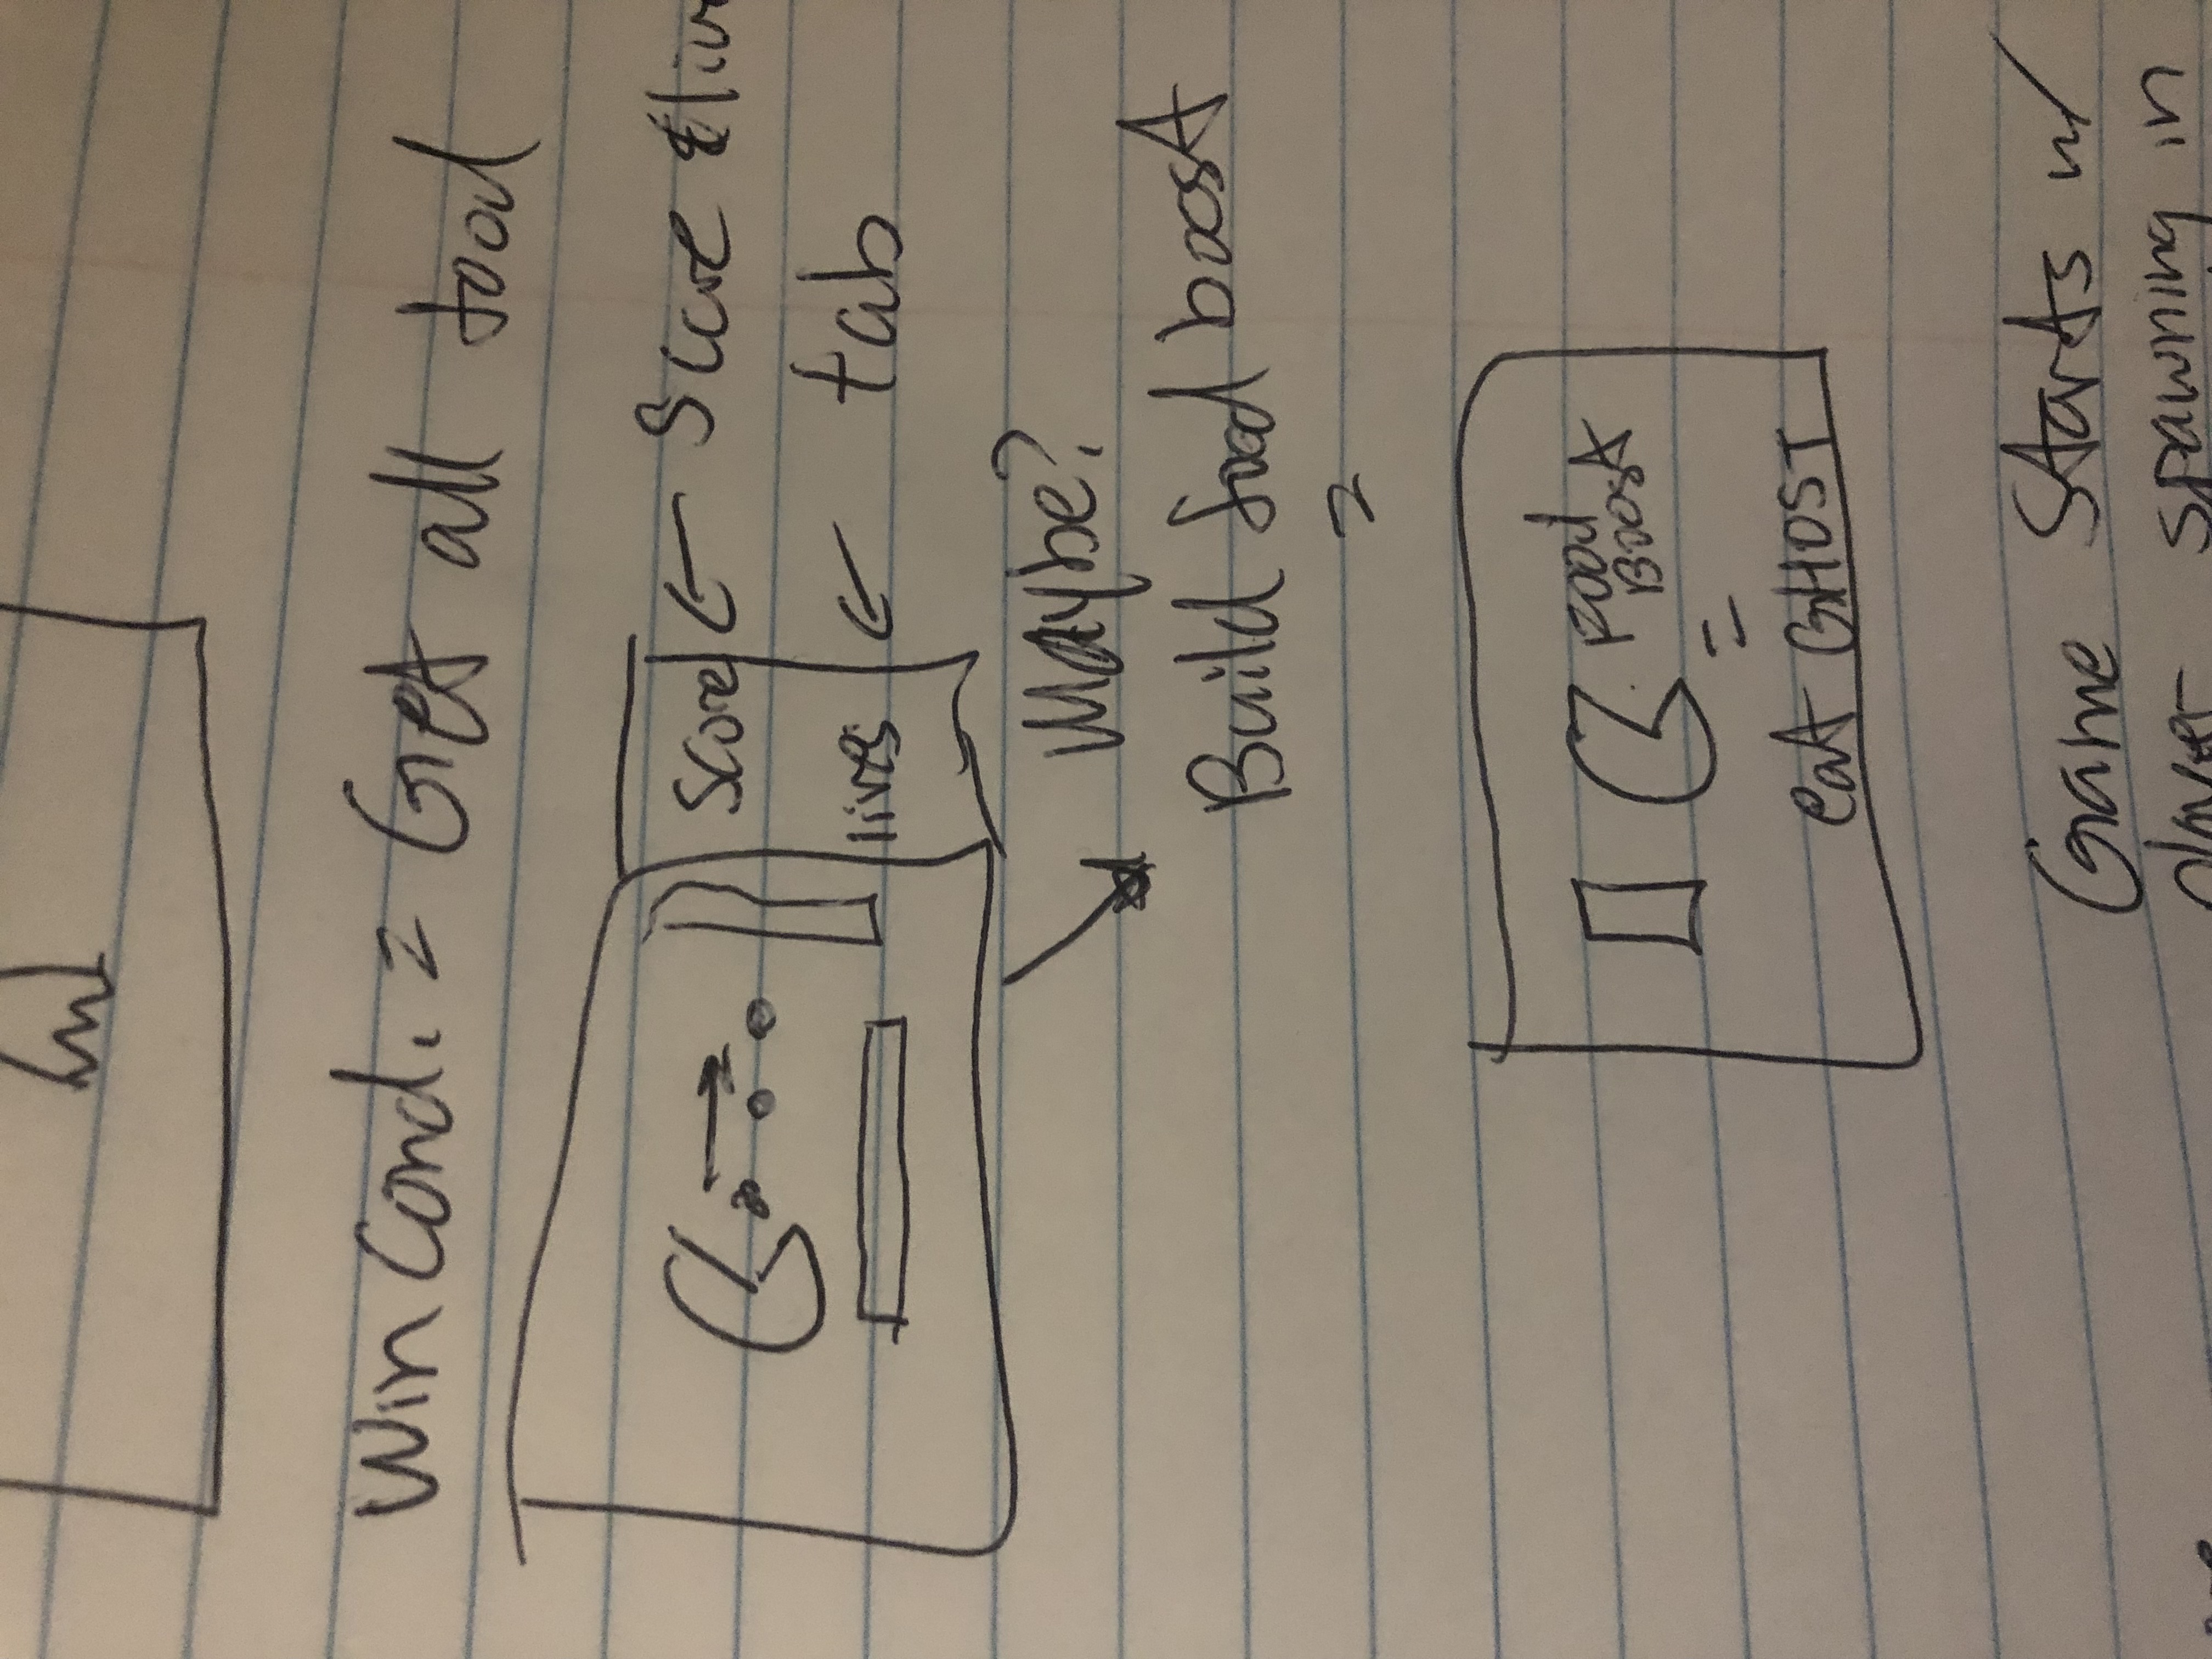 Win Cond. = Get all food
Score ← Score &
lives ← tab
Maybe?
Build food boost
=
Food
Boost
=
eat GHOST
Game Starts w/
player spawning in